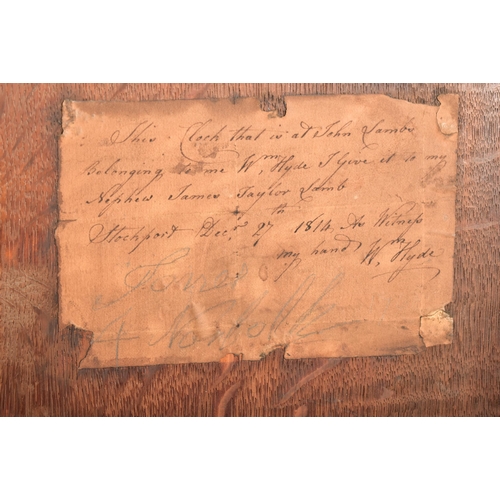 This Clock that is at John Lambs
belonging to me Wm, Hyde I Give it to my
Nephew James Taylor Lamb
Stockport Decr, 27th 1814, As Witness
my hand Wm, Hyde
4